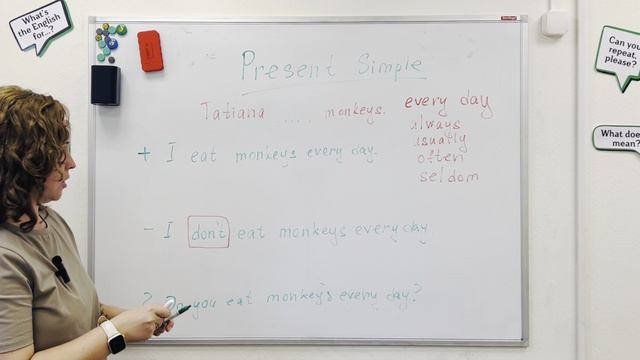 What's
the English
for...?
Present Simple
Tatiana .... monkeys. every day
always
usually
often
seldom
+ I eat monkeys every day.
- I don't eat monkeys every day.
? Do you eat monkeys every day?
Can you
repeat,
please?
What doe
mean?